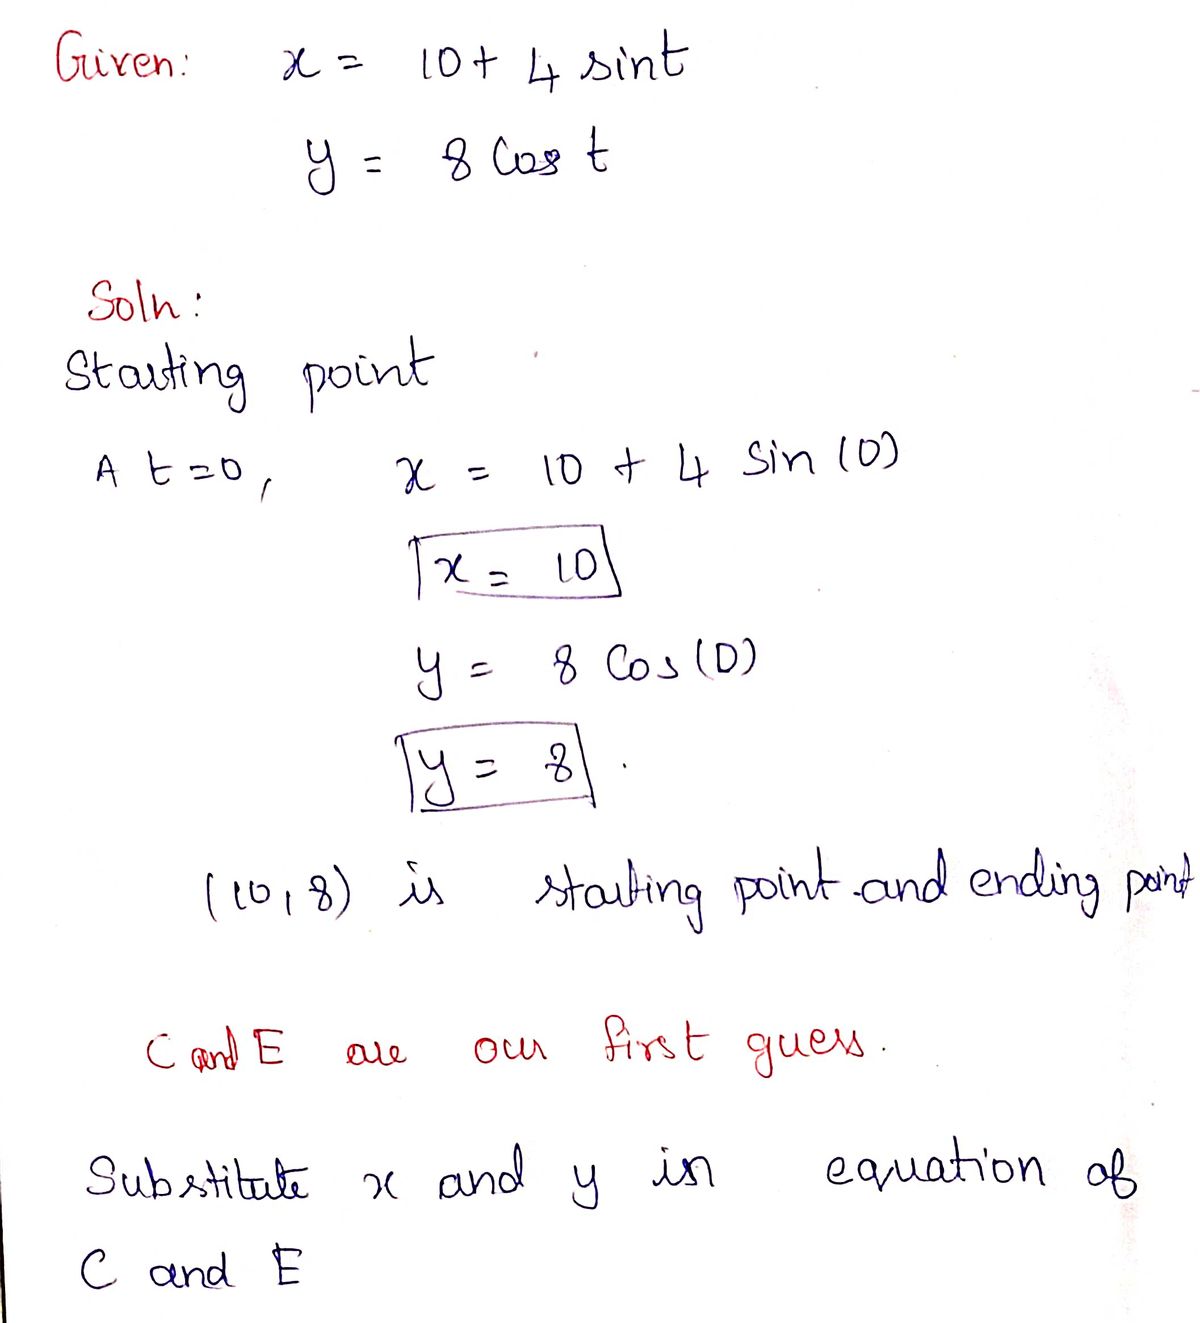 Given: x = 10 + 4 sint
y = 8 Cos t
Soln:
Starting point
A t=0, x = 10 + 4 Sin (0)
x = 10
y = 8 Cos (0)
y = 8.
(10, 8) is starting point and ending point
C and E are our first guess.
Substitute x and y in equation of
C and E